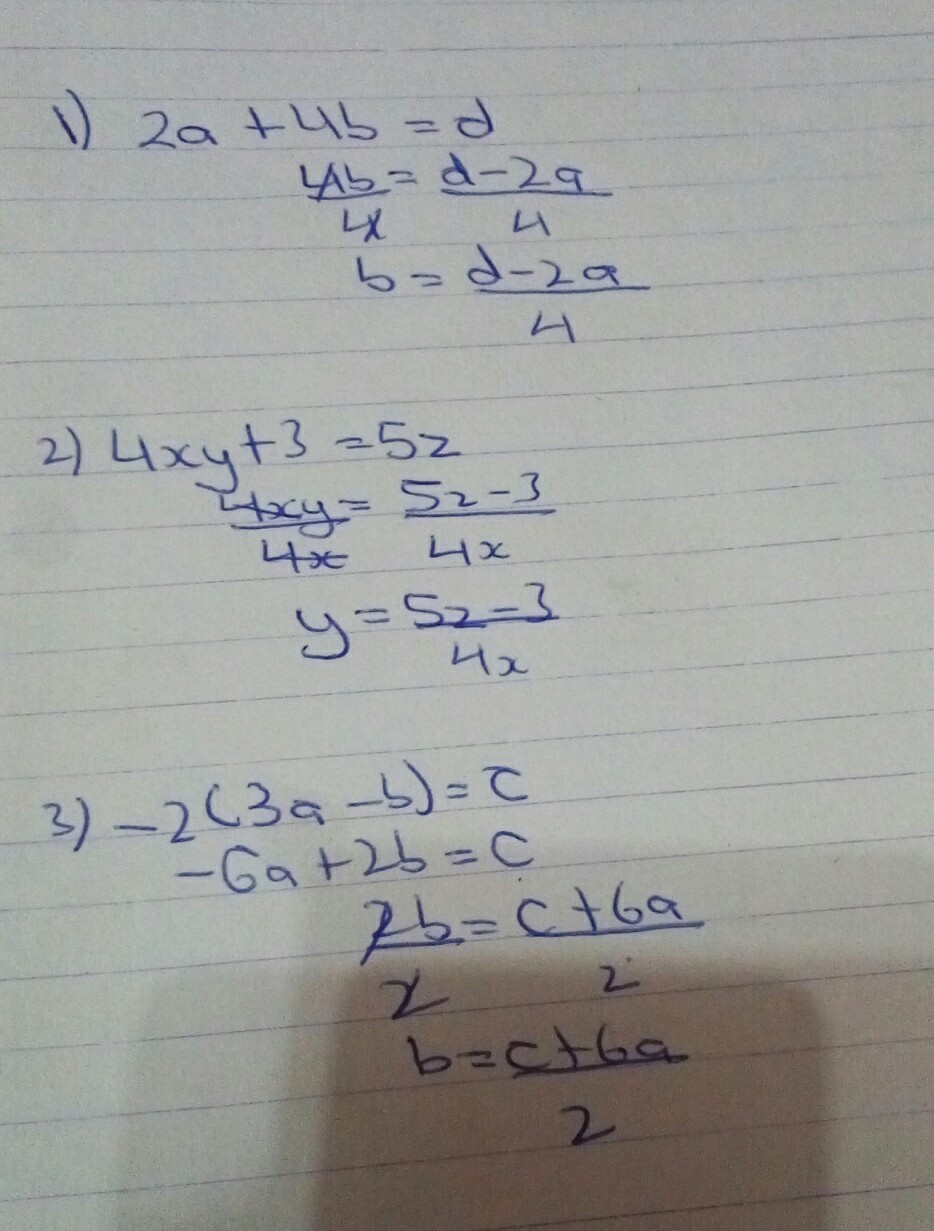 1) 2a + 4b = d
4b = d - 2a
4 4
b = d - 2a
4
2) 4xy + 3 = 5z
4xy = 5z - 3
4x 4x
y = 5z - 3
4x
3) -2(3a - b) = c
-6a + 2b = c
2b = c + 6a
2 2
b = c + 6a
2